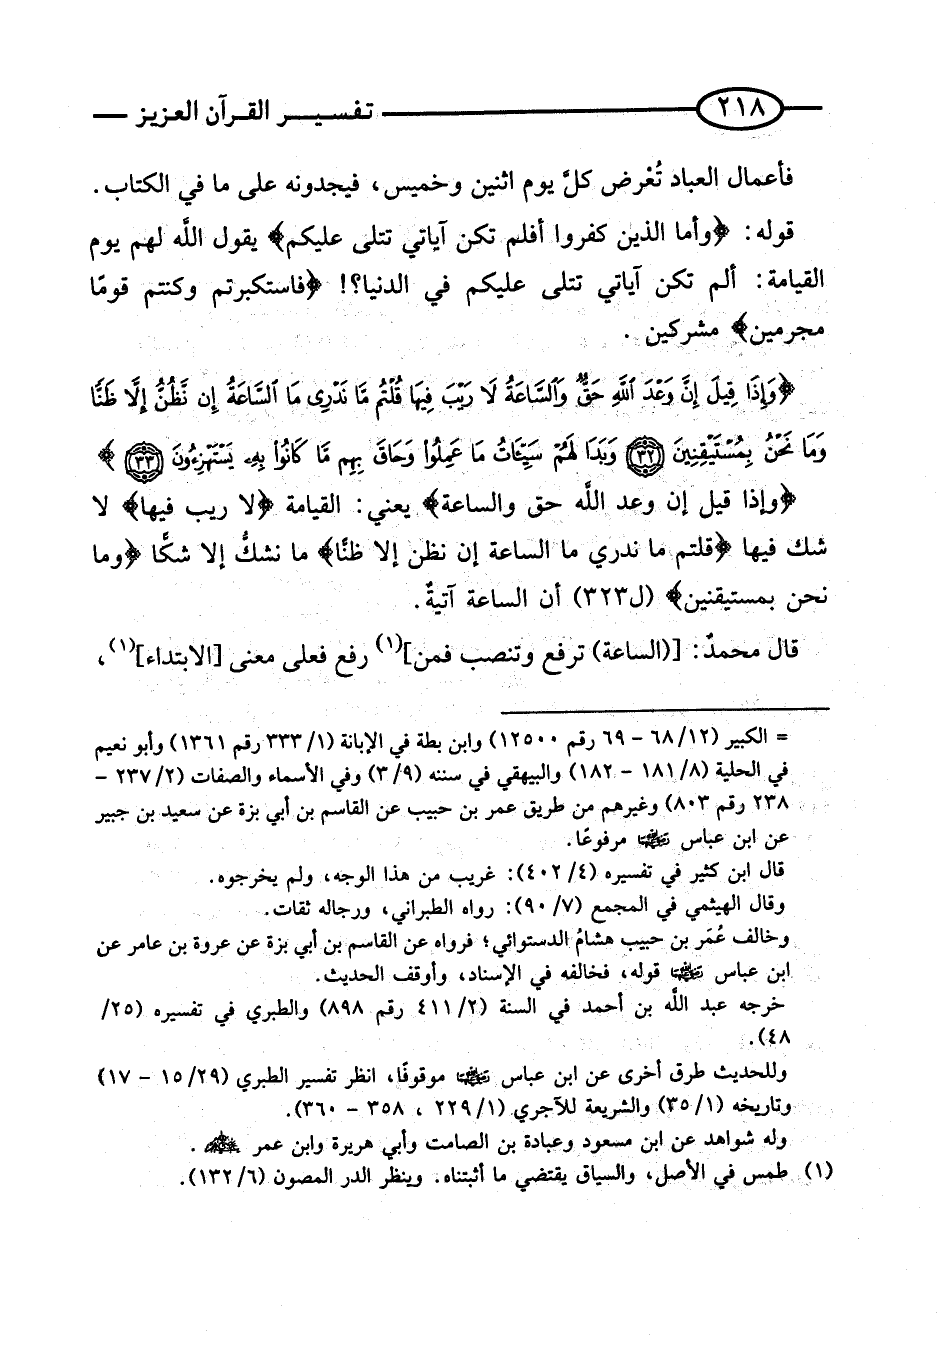 ٢١٨ تفسير القرآن العزيز
فأعمال العباد تُعْرض كلَّ يوم اثنين وخميس، فيجدونه على ما في الكتاب.
قوله: ﴿وأما الذين كفروا أفلم تكن آياتي تتلى عليكم﴾ يقول اللَّه لهم يوم
القيامة: ألم تكن آياتي تتلى عليكم في الدنيا؟! ﴿فاستكبرتم وكنتم قومًا
مجرمين﴾ مشركين .
﴿وَإِذَا قِيلَ إِنَّ وَعْدَ ٱللَّهِ حَقٌّ وَٱلسَّاعَةُ لَا رَيْبَ فِيهَا قُلْتُم مَّا نَدْرِى مَا ٱلسَّاعَةُ إِن نَّظُنُّ إِلَّا ظَنًّا
وَمَا نَحْنُ بِمُسْتَيْقِنِينَ ٣٢ وَبَدَا لَهُمْ سَيِّئَاتُ مَا عَمِلُوا۟ وَحَاقَ بِهِم مَّا كَانُوا۟ بِهِۦ يَسْتَهْزِءُونَ ٣٣ ﴾
﴿وإذا قيل إن وعد اللَّه حق والساعة﴾ يعني: القيامة ﴿لا ريب فيها﴾ لا
شك فيها ﴿قلتم ما ندري ما الساعة إن نظن إلا ظنًّا﴾ ما نشكُّ إلا شكًّا ﴿وما
نحن بمستيقنين﴾ (ل٣٢٣) أن الساعة آتيةٌ.
قال محمدٌ: [(الساعة) ترفع وتنصب فمن](١) رفع فعلى معنى [الابتداء](١)،
= الكبير (١٢/ ٦٨ - ٦٩ رقم ١٢٥٠٠) وابن بطة في الإبانة (١/ ٣٣٣ رقم ١٣٦١) وأبو نعيم
في الحلية (٨/ ١٨١ - ١٨٢) والبيهقي في سننه (٩/ ٣) وفي الأسماء والصفات (٢/ ٢٣٧ -
٢٣٨ رقم ٨٠٣) وغيرهم من طريق عمر بن حبيب عن القاسم بن أبي بزة عن سعيد بن جبير
عن ابن عباس مرفوعًا.
قال ابن كثير في تفسيره (٤/ ٤٠٢): غريب من هذا الوجه، ولم يخرجوه.
وقال الهيثمي في المجمع (٧/ ٩٠): رواه الطبراني، ورجاله ثقات.
وخالف عُمَر بن حبيب هشامُ الدستوائي؛ فرواه عن القاسم بن أبي بزة عن عروة بن عامر عن
ابن عباس قوله، فخالفه في الإسناد، وأوقف الحديث.
خرجه عبد اللَّه بن أحمد في السنة (٢/ ٤١١ رقم ٨٩٨) والطبري في تفسيره (٢٥/
٤٨).
وللحديث طرق أخرى عن ابن عباس موقوفًا، انظر تفسير الطبري (٢٩/ ١٥ - ١٧)
وتاريخه (١/ ٣٥) والشريعة للآجري (١/ ٢٢٩ ، ٣٥٨ - ٣٦٠).
وله شواهد عن ابن مسعود وعبادة بن الصامت وأبي هريرة وابن عمر .
(١) طمس في الأصل، والسياق يقتضي ما أثبتناه. وينظر الدر المصون (٦/ ١٣٢).